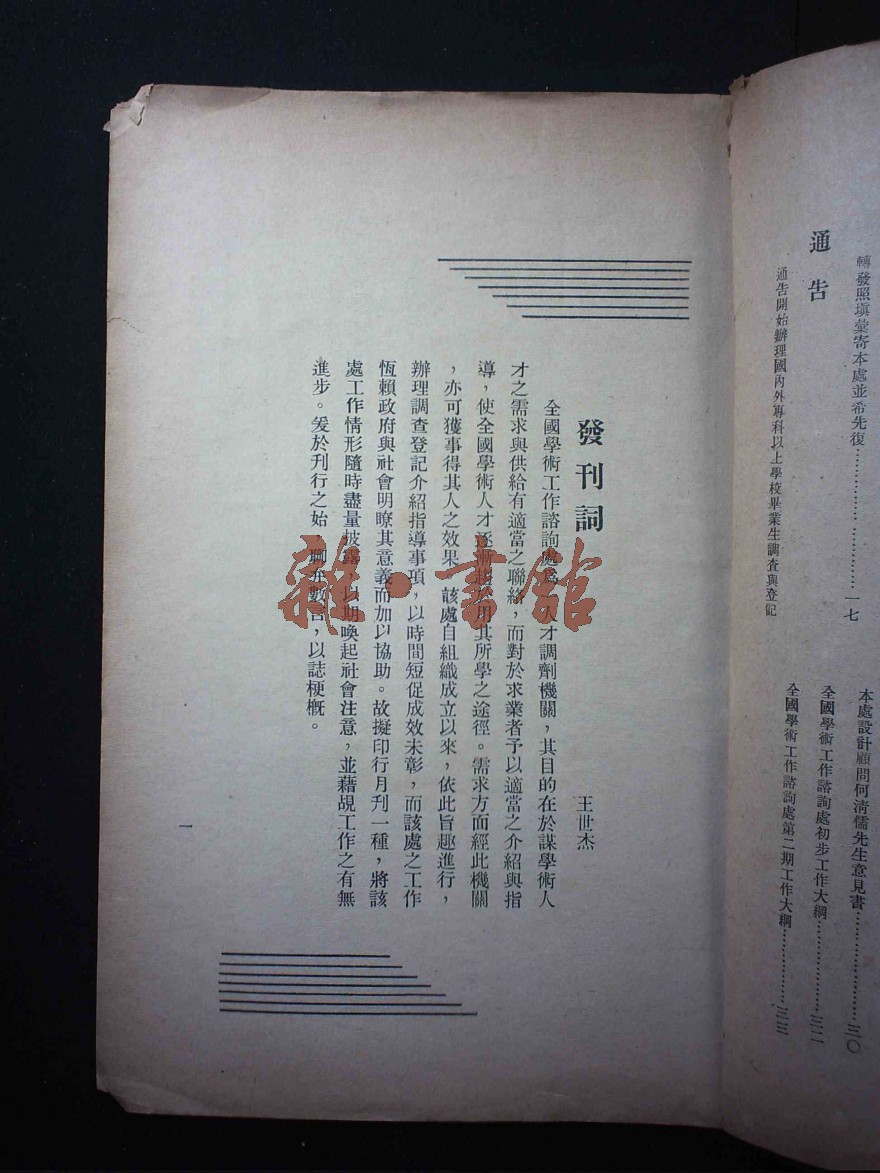 轉發照塡彙寄本處並希先復……………………一七
通告
通告開始辦理國內外專科以上學校畢業生調查與登記
本處設計顧問何清儒先生意見書……………三〇
全國學術工作諮詢處初步工作大綱……………三二
全國學術工作諮詢處第二期工作大綱……………三三
發刊詞
王世杰
全國學術工作諮詢處爲一人才調劑機關，其目的在於謀學術人
才之需求與供給有適當之聯絡，而對於求業者予以適當之介紹與指
導，使全國學術人才逐漸趨於用其所學之途徑。需求方面經此機關
，亦可獲事得其人之效果，該處自組織成立以來，依此旨趣進行，
辦理調查登記介紹指導事項，以時間短促成效未彰，而該處之工作
恆賴政府與社會明瞭其意義而加以協助。故擬印行月刊一種，將該
處工作情形隨時盡量披露，以期喚起社會注意，並藉覘工作之有無
進步。爰於刊行之始，聊弁數言，以誌梗槪。
一
雜·書館